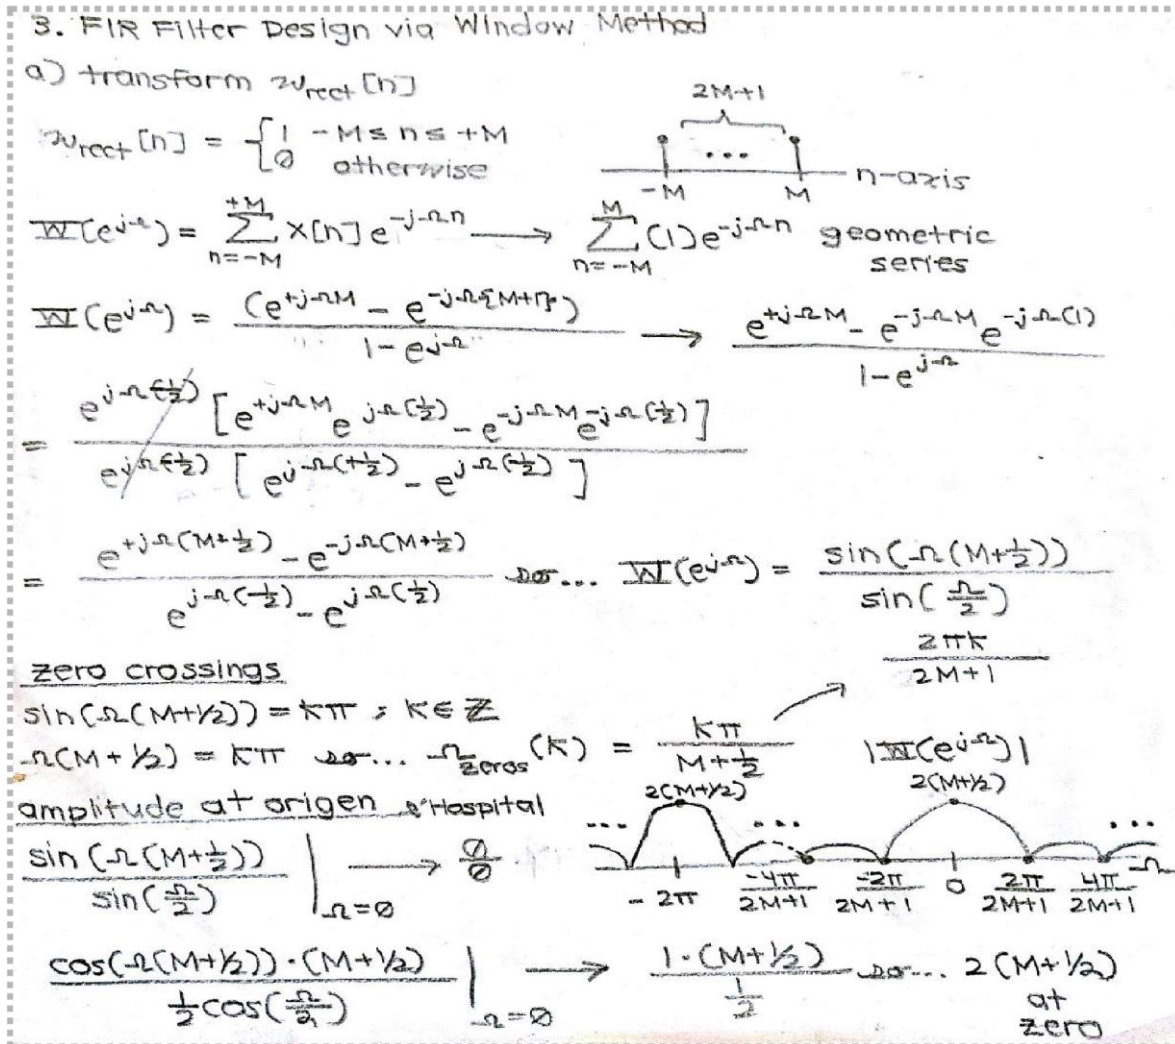 3. FIR Filter Design via Window Method
a) transform w_rect[n]
2M+1
w_rect[n] = { 1 -M ≤ n ≤ +M
0 otherwise
...
-M M n-axis
W(e^{jΩ}) = Σ_{n=-M}^{+M} x[n] e^{-jΩn} → Σ_{n=-M}^{M} (1) e^{-jΩn} geometric series
W(e^{jΩ}) = (e^{+jΩM} - e^{-jΩ{M+1}}) / (1 - e^{jΩ}) → (e^{+jΩM} - e^{-jΩM} e^{-jΩ(1)}) / (1 - e^{jΩ})
= e^{jΩ(-1/2)} [e^{+jΩM} e^{jΩ(1/2)} - e^{-jΩM} e^{-jΩ(1/2)}] / e^{jΩ(-1/2)} [e^{jΩ(+1/2)} - e^{jΩ(-1/2)}]
= (e^{+jΩ(M+1/2)} - e^{-jΩ(M+1/2)}) / (e^{jΩ(-1/2)} - e^{jΩ(1/2)}) so... W(e^{jΩ}) = sin(Ω(M+1/2)) / sin(Ω/2)
zero crossings
2πk / (2M+1)
sin(Ω(M+1/2)) = kπ ; k∈ℤ
Ω(M+1/2) = kπ so... Ω_zeros(k) = kπ / (M+1/2)
|W(e^{jΩ})|
amplitude at origen l'Hospital
2(M+1/2) 2(M+1/2)
... ... ...
sin(Ω(M+1/2)) / sin(Ω/2) |_{Ω=0} → 0/0
-2π -4π/(2M+1) -2π/(2M+1) 0 2π/(2M+1) 4π/(2M+1) Ω
cos(Ω(M+1/2))·(M+1/2) / (1/2 cos(Ω/2)) |_{Ω=0} → 1·(M+1/2) / (1/2) so... 2(M+1/2) at zero